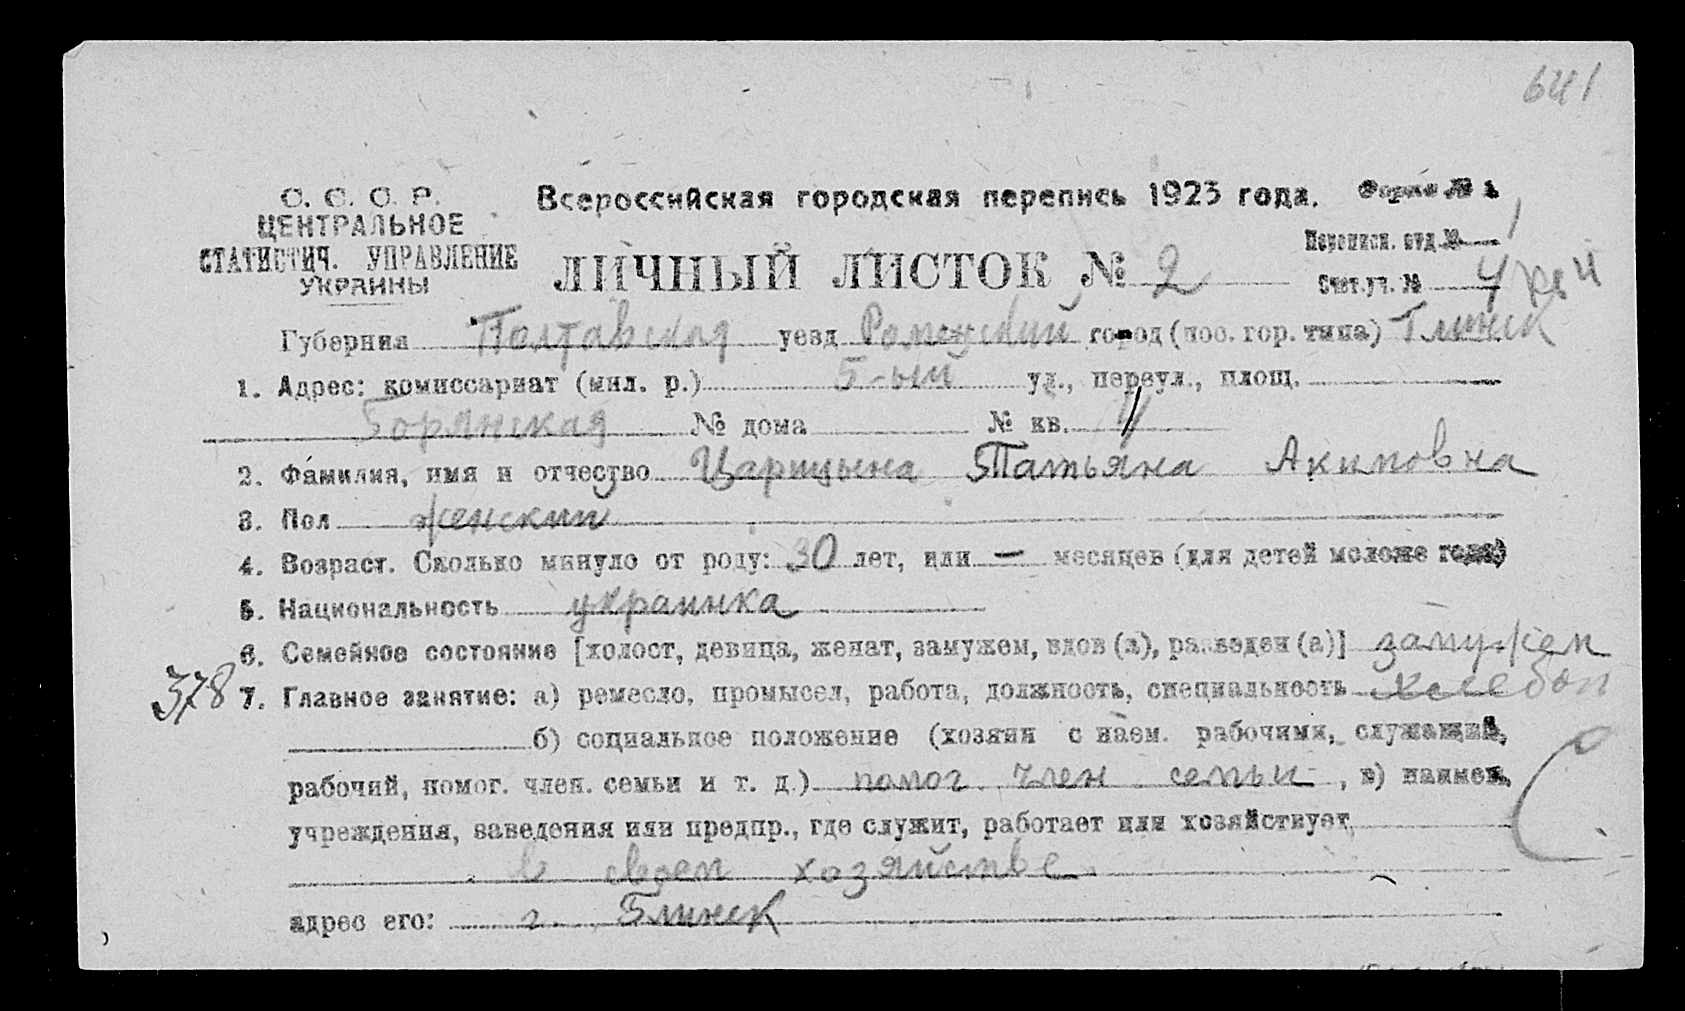 641
С. С. С. Р.
ЦЕНТРАЛЬНОЕ
СТАТИСТИЧ. УПРАВЛЕНИЕ
УКРАИНЫ
Всероссийская городская перепись 1923 года.
Форма № 1
ЛИЧНЫЙ ЛИСТОК № 2
Переписн. отд. № 1
Счет. уч. № 4
Губерния Полтавская уезд Роменский город (пос. гор. типа) Глинск
1. Адрес: комиссариат (мил. р.) 5-ый ул., переул., площ.
Горянская № дома № кв. 11
2. Фамилия, имя и отчество Царицына Татьяна Акимовна
3. Пол женский
4. Возраст. Сколько минуло от роду: 30 лет, или — месяцев (для детей моложе года)
5. Национальность украинка
6. Семейное состояние [холост, девица, женат, замужем, вдов (а), разведен (а)] замужем
378 7. Главное занятие: а) ремесло, промысел, работа, должность, специальность хлебоп
б) социальное положение (хозяин с наем. рабочими, служащий,
рабочий, помог. член. семьи и т. д.) помог. член семьи, в) наимен.
учреждения, заведения или предпр., где служит, работает или хозяйствует
в своем хозяйстве
адрес его: г. Глинск